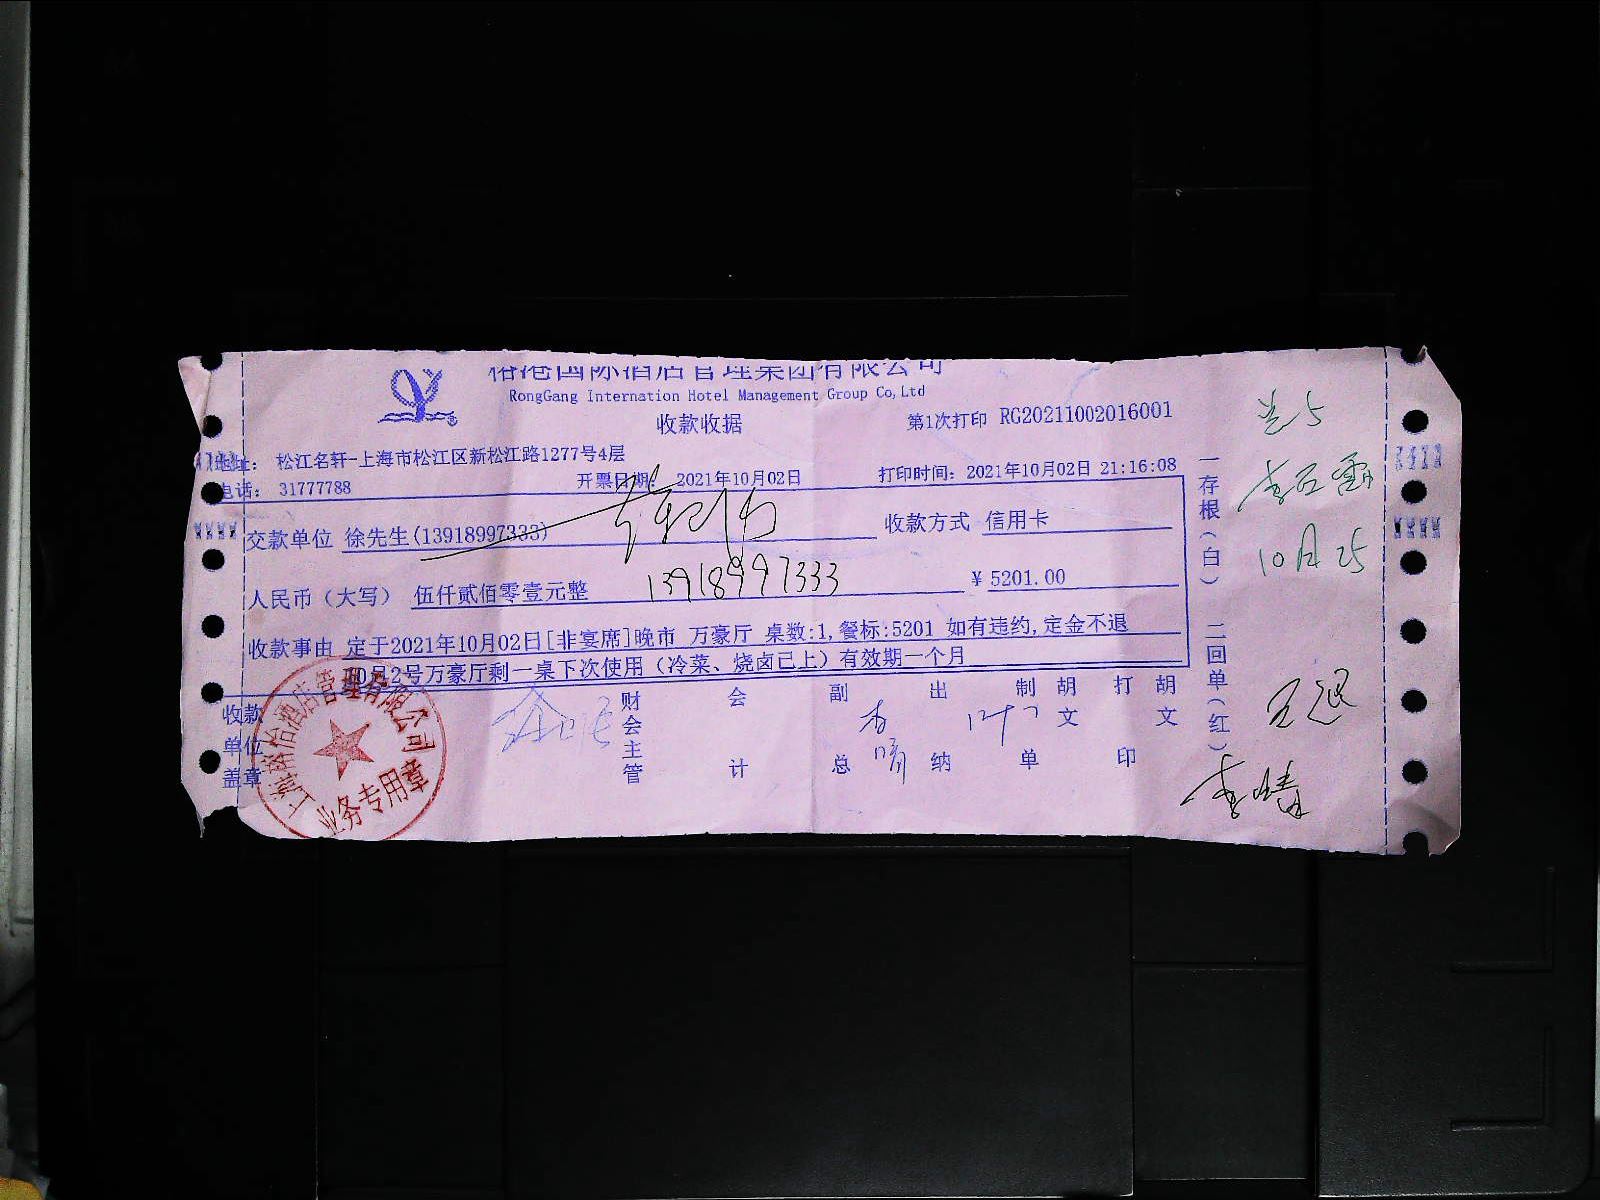 榕港国际酒店管理集团有限公司
RongGang Internation Hotel Management Group Co,Ltd
收款收据
第1次打印 RG20211002016001
地址: 松江名轩-上海市松江区新松江路1277号4层
电话: 31777788
开票日期: 2021年10月02日
打印时间: 2021年10月02日 21:16:08
交款单位 徐先生(13918997333)
收款方式 信用卡
人民币（大写） 伍仟贰佰零壹元整
13918997333
¥ 5201.00
收款事由 定于2021年10月02日[非宴席]晚市 万豪厅 桌数:1,餐标:5201 如有违约,定金不退
10月2号万豪厅剩一桌下次使用（冷菜、烧卤已上）有效期一个月
收款单位盖章
财会主管
会计
副总
出纳
制单
胡文
打印
胡文
李晴
一存根（白）
二回单（红）
10月25
李晴
业务专用章